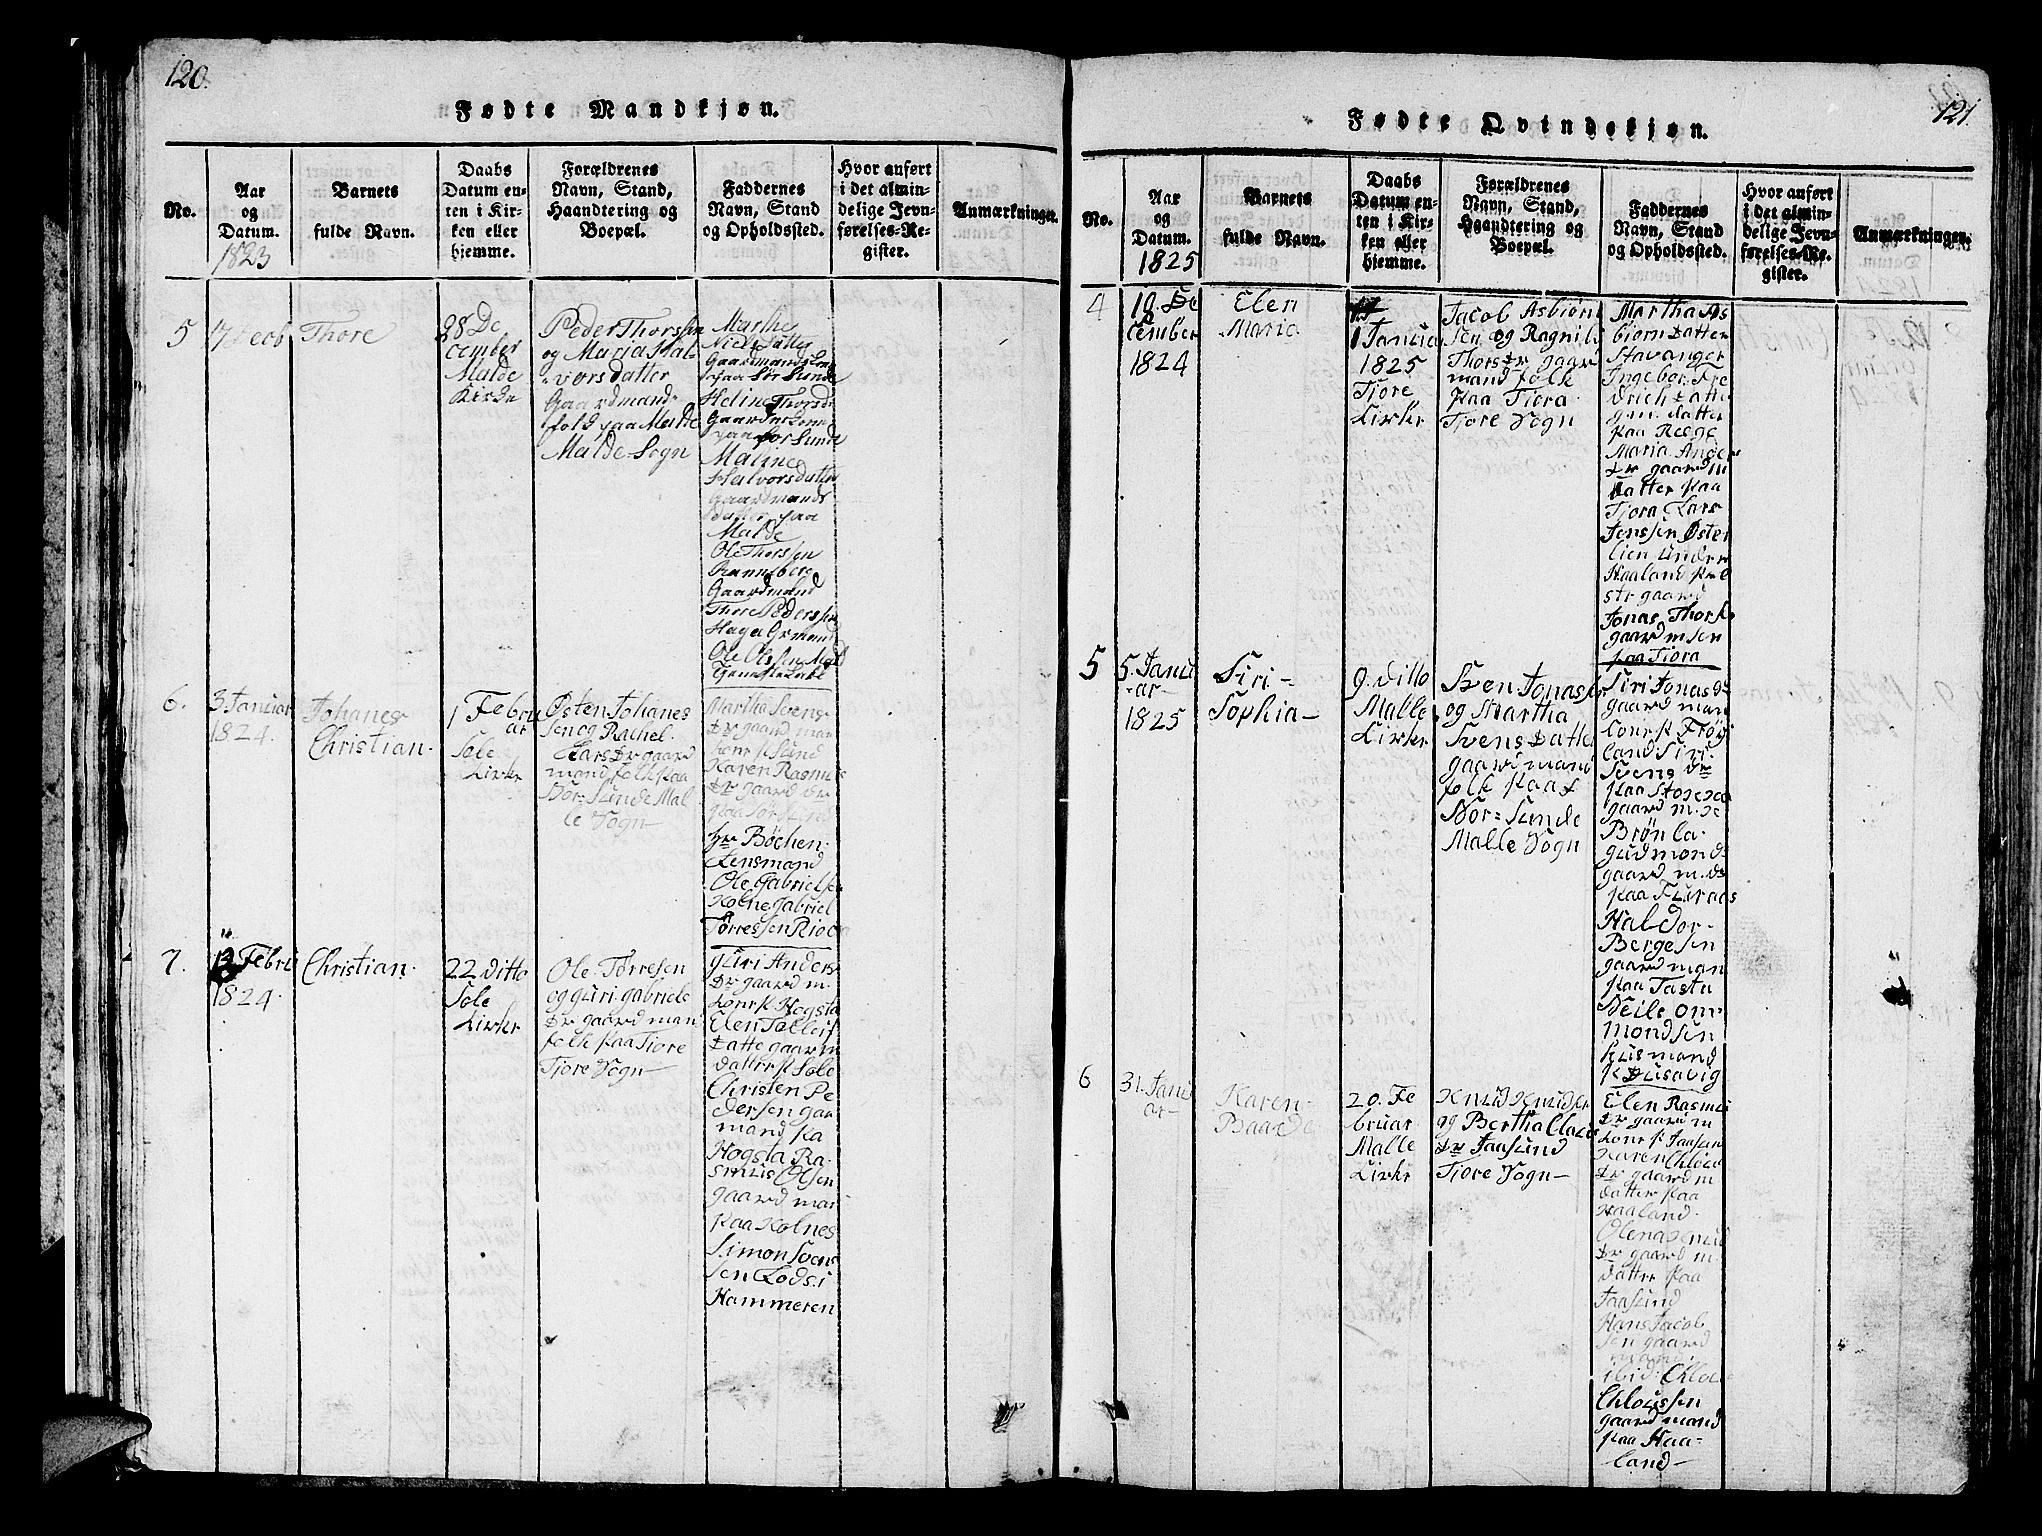 120.
Fødte Mandkjøn.
No.
Aar
og
Datum.
1823
Barnets
fulde Navn.
Daabs
Datum en-
ten i Kir-
ken eller
hjemme.
Forældrenes
Navn, Stand,
Haandtering og
Boepæl.
Faddernes
Navn, Stand
og Opholdssted.
Hvor anført
i det almin-
delige Jevn-
førelses-Re-
gister.
Anmærkninger.
5
Thore
28 De
cember
Malde
Kirke
Peder Thorssen
og Maria Hal
vorsdatter
Gaardmand-
folk paa Malde
Malde-Sogn
Marthe
Niels datter
Gaardmands kone
paa Sør Sunde
Heline Thorsdr
paa Sør Sunde
Maline
Halvorsdatter
Gaardmands
datter paa
Malde
Ole Thorssen
Ranneberg
Gaardmand
Thore Pederssen
Haga Grmand
Ole Olssen Mald
6.
3 Januar
1824.
Johanes
Christian.
1 Febru
ar
Sole
Kirke
Østen Johanes
Sen og Rachel
Lars Dr gaard
mand folk paa
Nor-Sunde Mal
le Sogn
Martha Svens
Dr gaard man
kone p Sund
Karen Rasmus
Dr gaard dr
paa Sør Sund
Hr Bøchen
Lensmand
Ole Gabrielsen
Kolne Gabriel
Tørressen
7.
12 Febru
1824.
Christian.
22 ditto
Sole
Kirke
Ole Tørresen
og Guri Gabriels
Dr gaard man
folk paa Tiore
Tiore Sogn
Guri Anders
Dr gaard m.
kone p Hogsta
Elen Tolleif
Datte gaar m
datter p Sole
Christen Pe
dersen gar
mand pa
Hogsta Ra-
smus Olsen
gaard man
paa Kolnes
Simon Sven
sen Lods i
Hammeren
121.
Fødte Qvindekjøn.
No.
Aar
og
Datum.
1825
Barnets
fulde Navn.
Daabs
Datum en-
ten i Kir-
ken eller
hjemme.
Forældrenes
Navn, Stand,
Haandtering og
Boepæl.
Faddernes
Navn, Stand
og Opholdssted.
Hvor anført
i det almin-
delige Jevn-
førelses-Re-
gister.
Anmærkninger.
4
De
cember
1824
Elen
Maria
1 Janua
1825
Tiore
Kirke
Jacob Asbiørn
Sen og Ragnild
Thors Dr gaar
mand folk
paa Tiora
Tiore Sogn
Martha As
biørn Datter
Stavanger
Ingebor Fre
drich Datte
gm. datter
paa Ræge
Maria Ander
Dr gaard m
datter paa
Tiora Lars
Jenssen Øster
lien under
Haaland
gaard
Jonas Thors
gaard m sen
paa Tiora
5
5. Janu
-ar-
1825
Siri-
Sophia-
9. ditto
Malle
Kirke
Sven Jonassen
og Martha
Svens Datter
gaard mand
folk paa
Nor-Sunde
Malle Sogn
Siri Jonas Dr
gaard man
kone p Frøi
land Siri
Svens Dr
paa
gaard m.
Brønla
Gudmond
gaard m. dr
paa
Haldor-
Bergesen
gaard man
paa Tasta
Neile Om
mondsen
Husmand
p Dusavig
6
31. Janu
ar-
Karen-
20. Fe
bruar
Malle
Kirke
Knud Knudsen
og Bertha Claus
Dr Jaasund
Tiore Sogn-
Elen Rasmus
Dr gaard m
kone p Jaasun
Karen
Dr gaard m
datter paa
Haaland.
Dr gaard m
datter paa
Jaasund
Hans Jacob
sen gaard
mand
ibid.
gaard mand
paa Haa-
land-